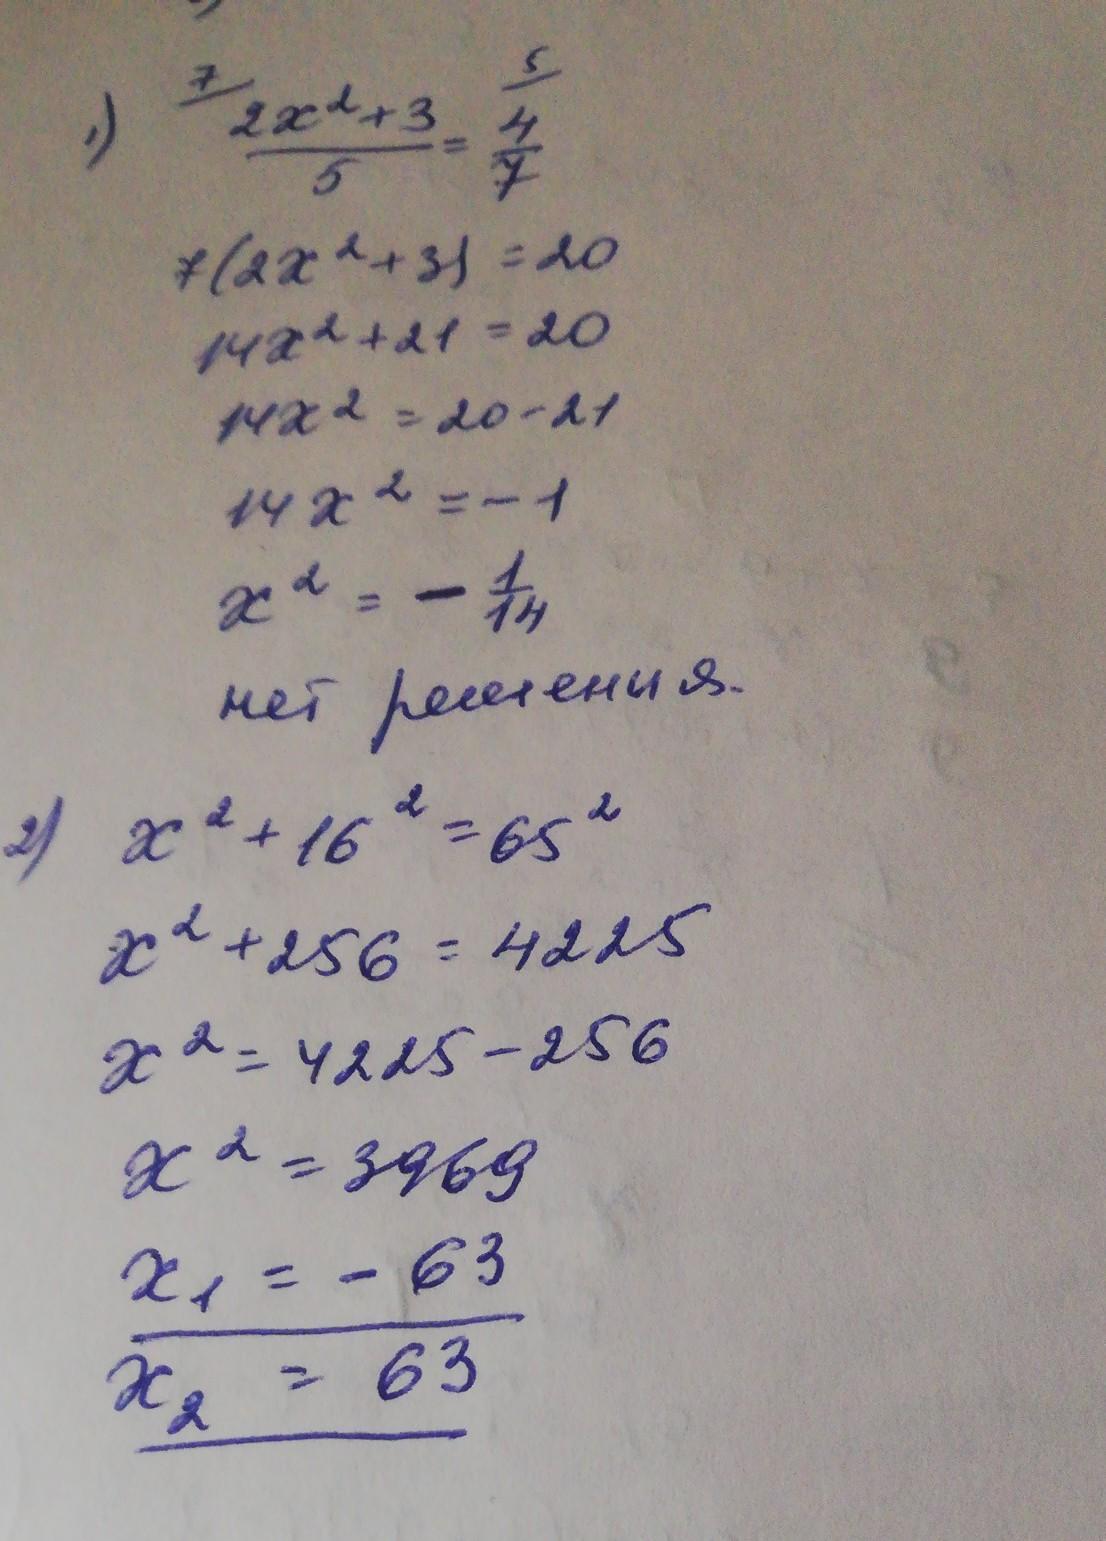 1) ⁷⁄ (2x²+3)/5 = ⁵⁄ 4/7
7(2x²+3) = 20
14x²+21 = 20
14x² = 20-21
14x² = -1
x² = - 1/14
нет решения.
2) x²+16² = 65²
x²+256 = 4225
x² = 4225-256
x² = 3969
x₁ = -63
x₂ = 63